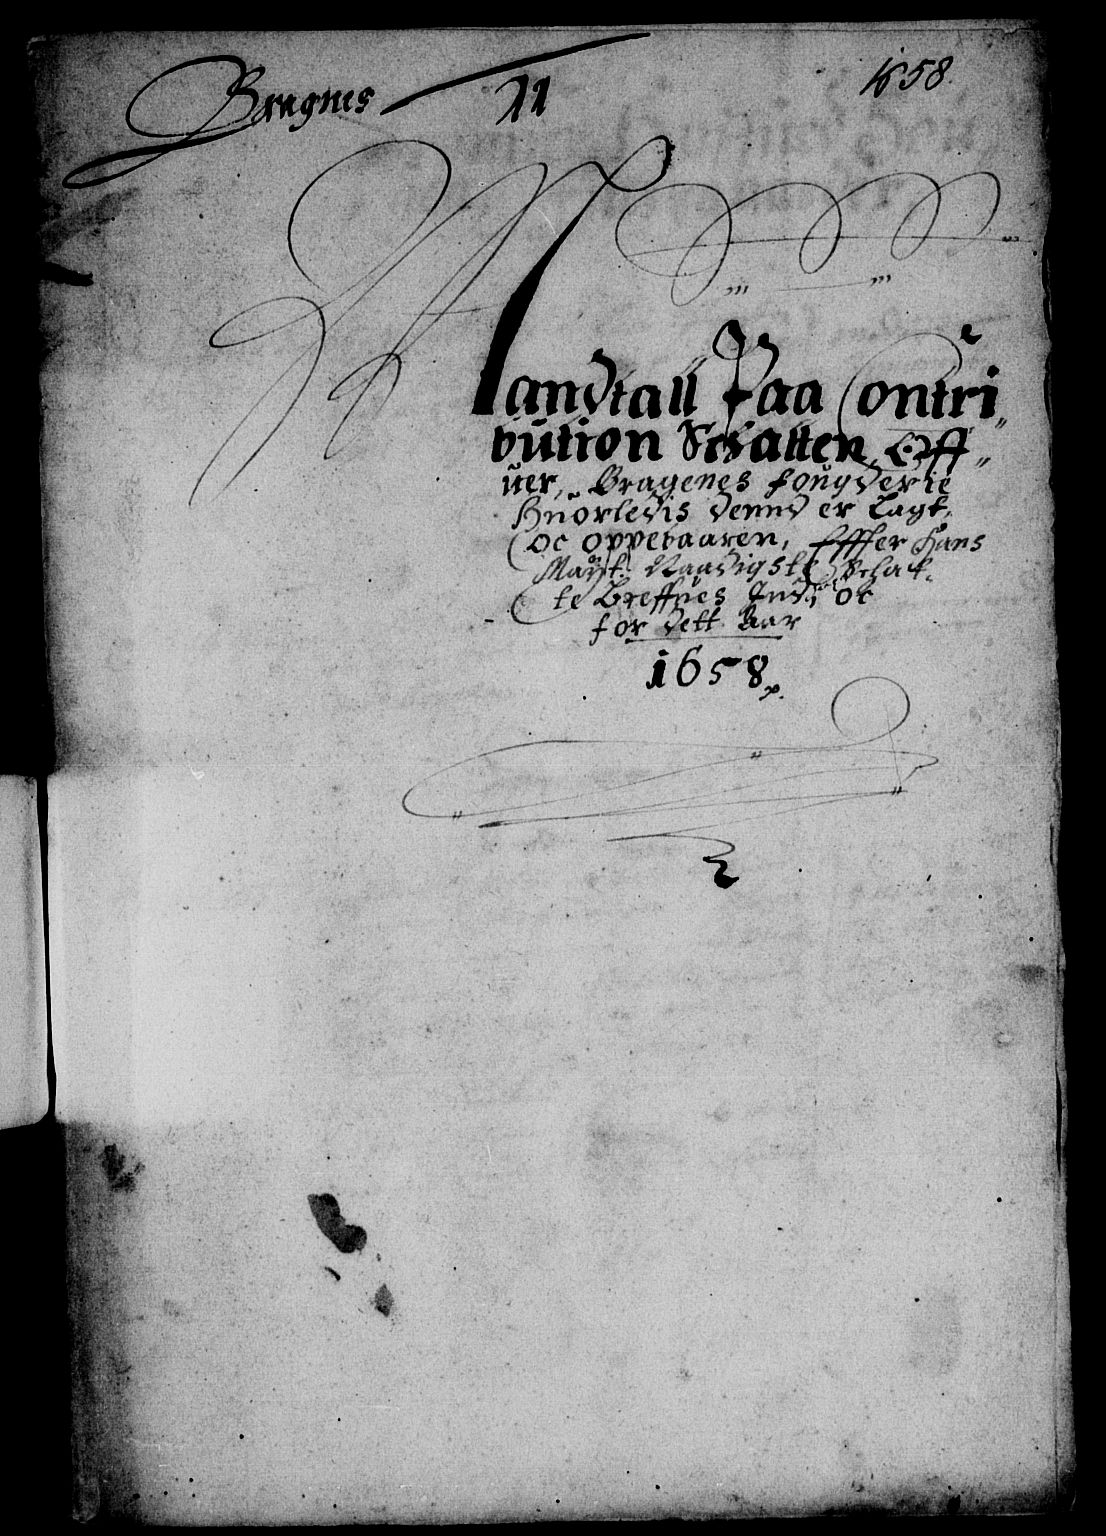 Bragnes 11 1658.
Mandtall Paa Contri„
bution Schatten, Off„
uer, Bragenes fougderie
Huorledis dennd er Lagt,
oc oppebaaren, Effter Hans
Mayt: Naadigste Schat„
te Breffues Indhold oc
for dett Aar
1658